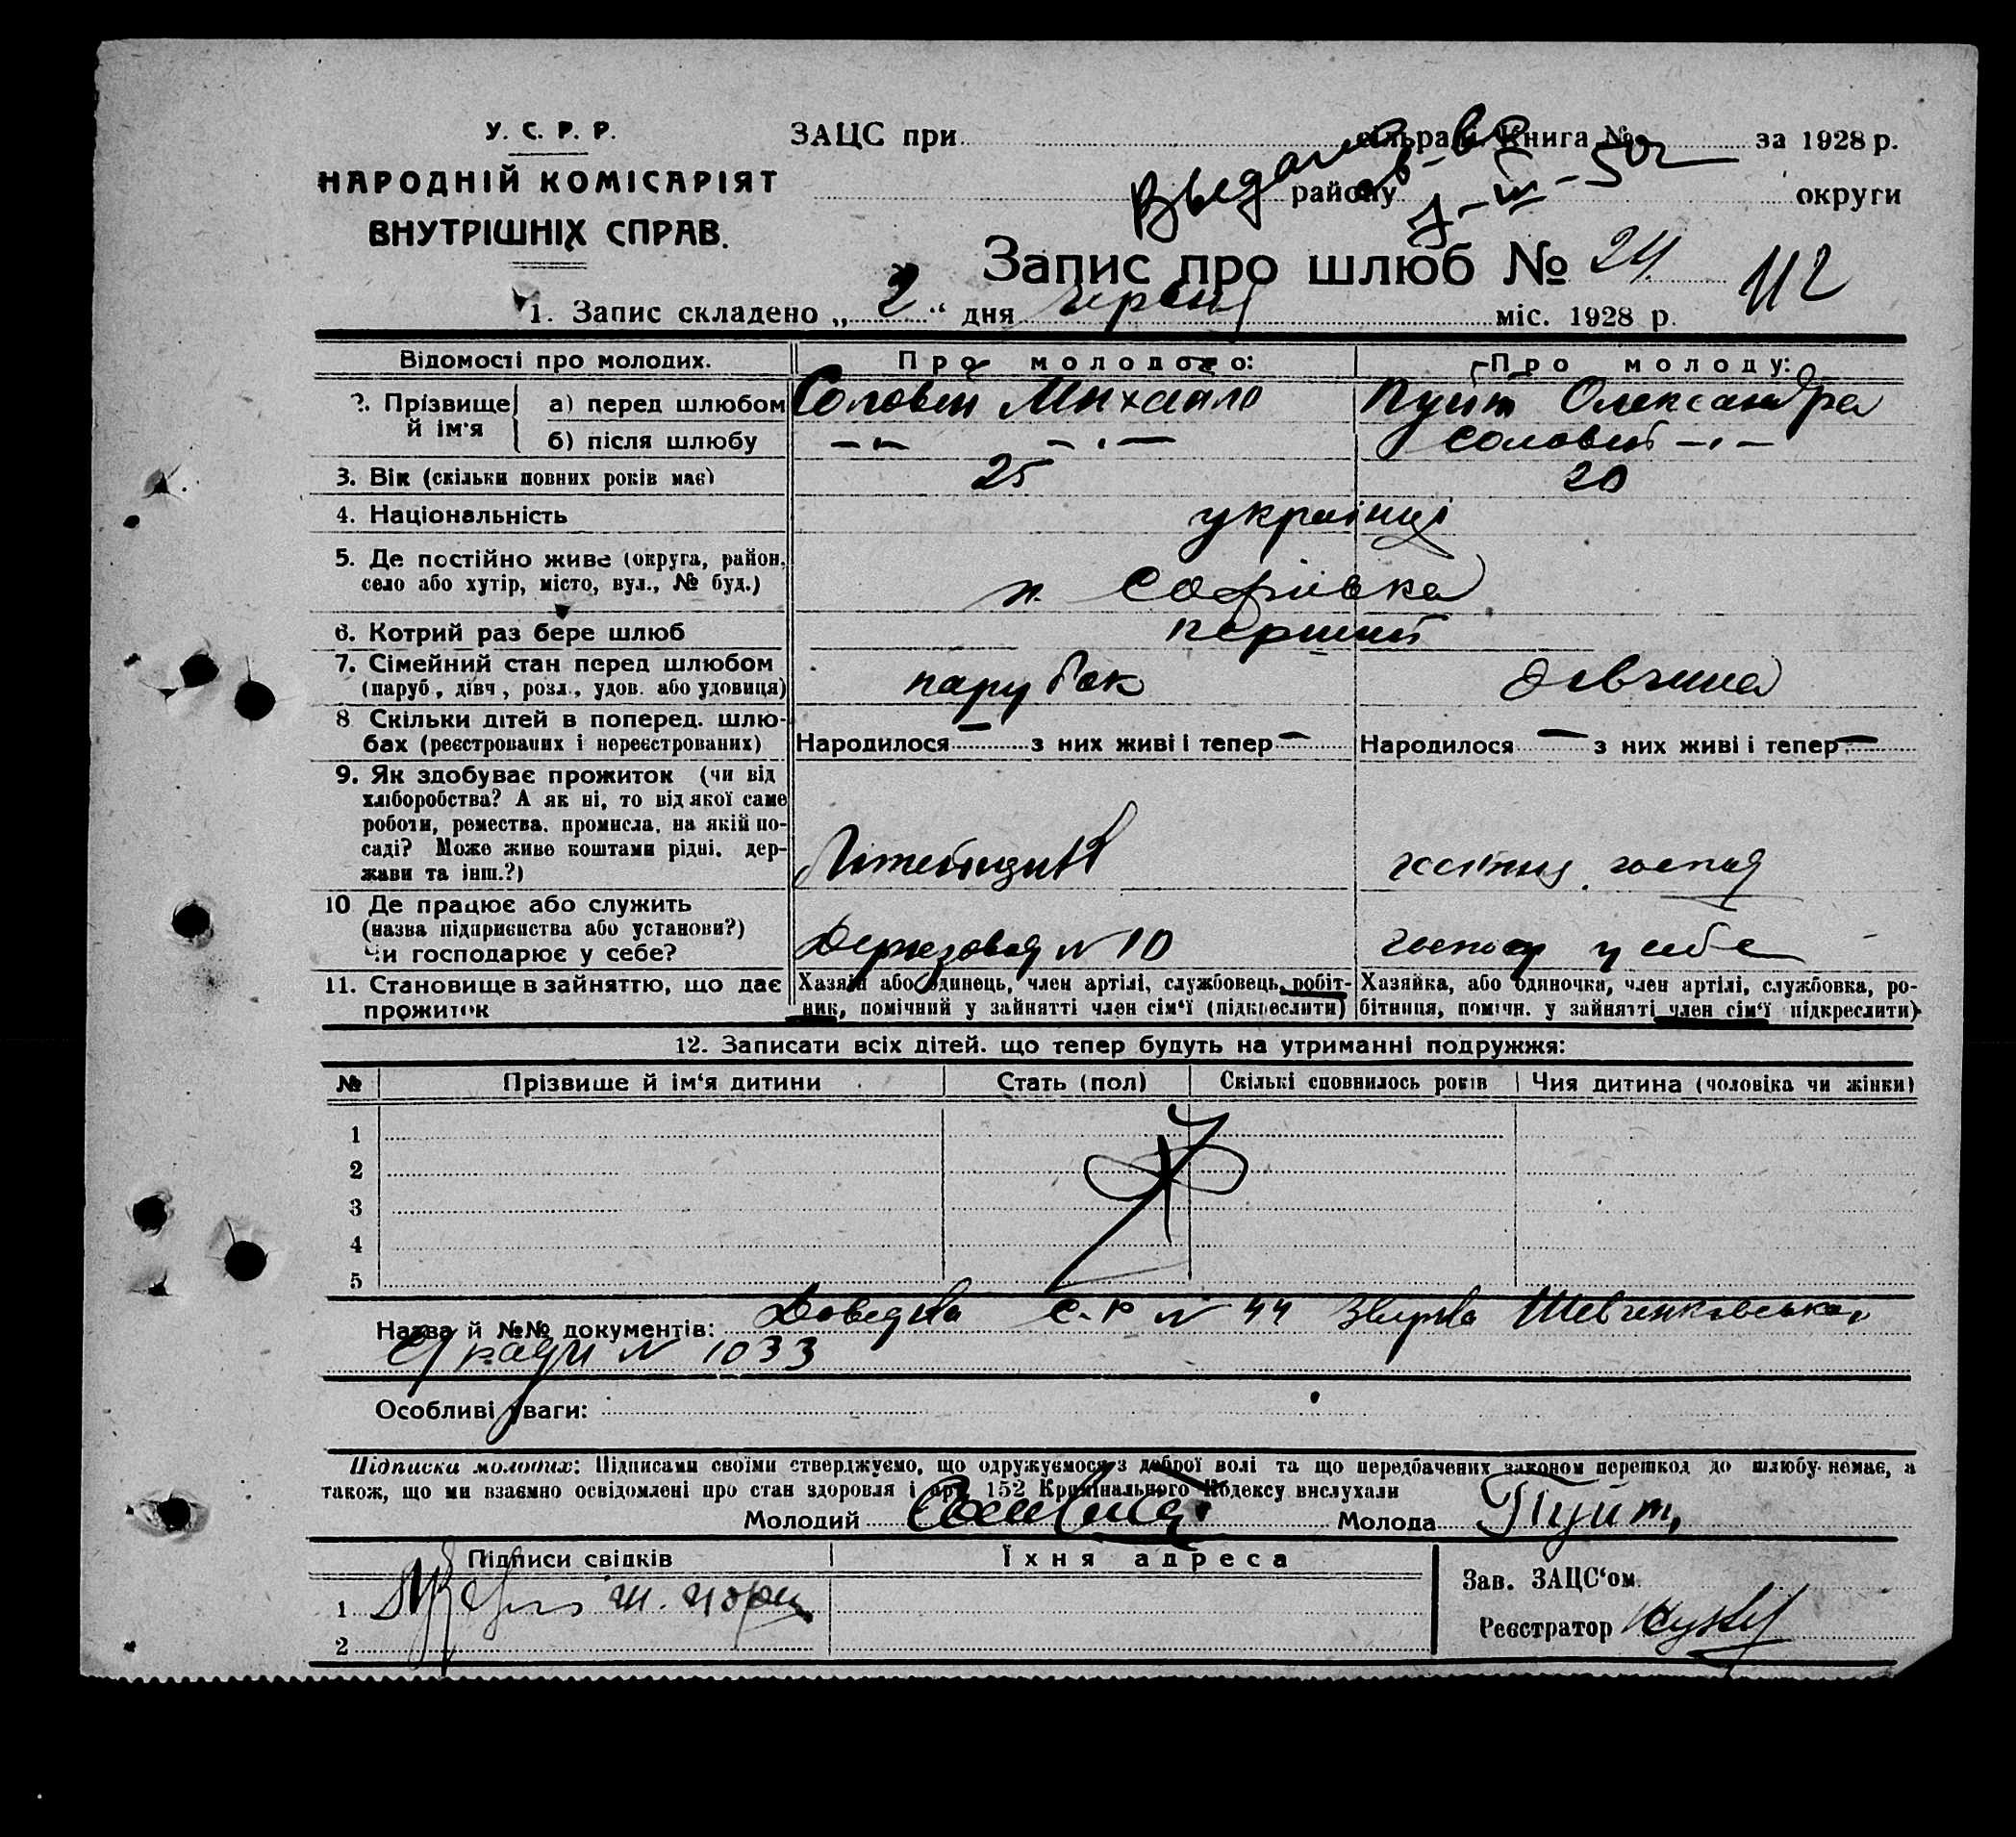 У. С. Р. Р.
НАРОДНІЙ КОМІСАРІЯТ
ВНУТРІШНІХ СПРАВ.
ЗАЦС при сільраді Книга № за 1928 р.
району округи
Выдана
Запис про шлюб № 24. 112
1. Запис складено „ 2 “ дня червня міс. 1928 р.
Відомості про молодих. Про молодого: Про молоду:
2. Прізвище й ім'я
а) перед шлюбом Соловей Михайло Пуйт Олександра
б) після шлюбу — — Соловей —
3. Вік (скільки повних років має) 25 20
4. Національність українці
5. Де постійно живе (округа, район,
село або хутір, місто, вул., № буд.) Софіївка
6. Котрий раз бере шлюб перший
7. Сімейний стан перед шлюбом
(паруб., дівч., розл., удов. або удовиця) парубок дівчина
8 Скільки дітей в поперед. шлю-
бах (реєстрованих і нереєстрованих) Народилося — з них живі і тепер — Народилося — з них живі і тепер —
9. Як здобуває прожиток (чи від
хліборобства? А як ні, то від якої саме
роботи, ремества, промисла, на якій по-
саді? Може живе коштами рідні, дер-
жави та інш.?)
10 Де працює або служить
(назва підприємства або установи?)
Чи господарює у себе? Держзавод № 10 господ у себе
11. Становище в зайняттю, що дає
прожиток
Хазяїн або одинець, член артілі, службовець, робіт-
ник, помічний у зайнятті член сім'ї (підкреслити)
Хазяйка, або одиночка, член артілі, службовка, ро-
бітниця, помічн. у зайнятті член сім'ї підкреслити)
12. Записати всіх дітей, що тепер будуть на утриманні подружжя:
№ Прізвище й ім'я дитини Стать (пол) Скількі сповнилось років Чия дитина (чоловіка чи жінки)
1
2
3
4
5
Назва й №№ документів: Довідка С.Р № 44 Шевченківської
С/ради № 1033
Особливі уваги:
Підписка молодих: Підписами своїми стверджуємо, що одружуємося з доброї волі та що передбачених законом перешкод до шлюбу немає, а
також, що ми взаємно освідомлені про стан здоровля і арт. 152 Кримінального Кодексу вислухали
Молодий Молода Пуйт
Підписи свідків Їхня адреса
Зав. ЗАЦС'ом
1
Реєстратор
2